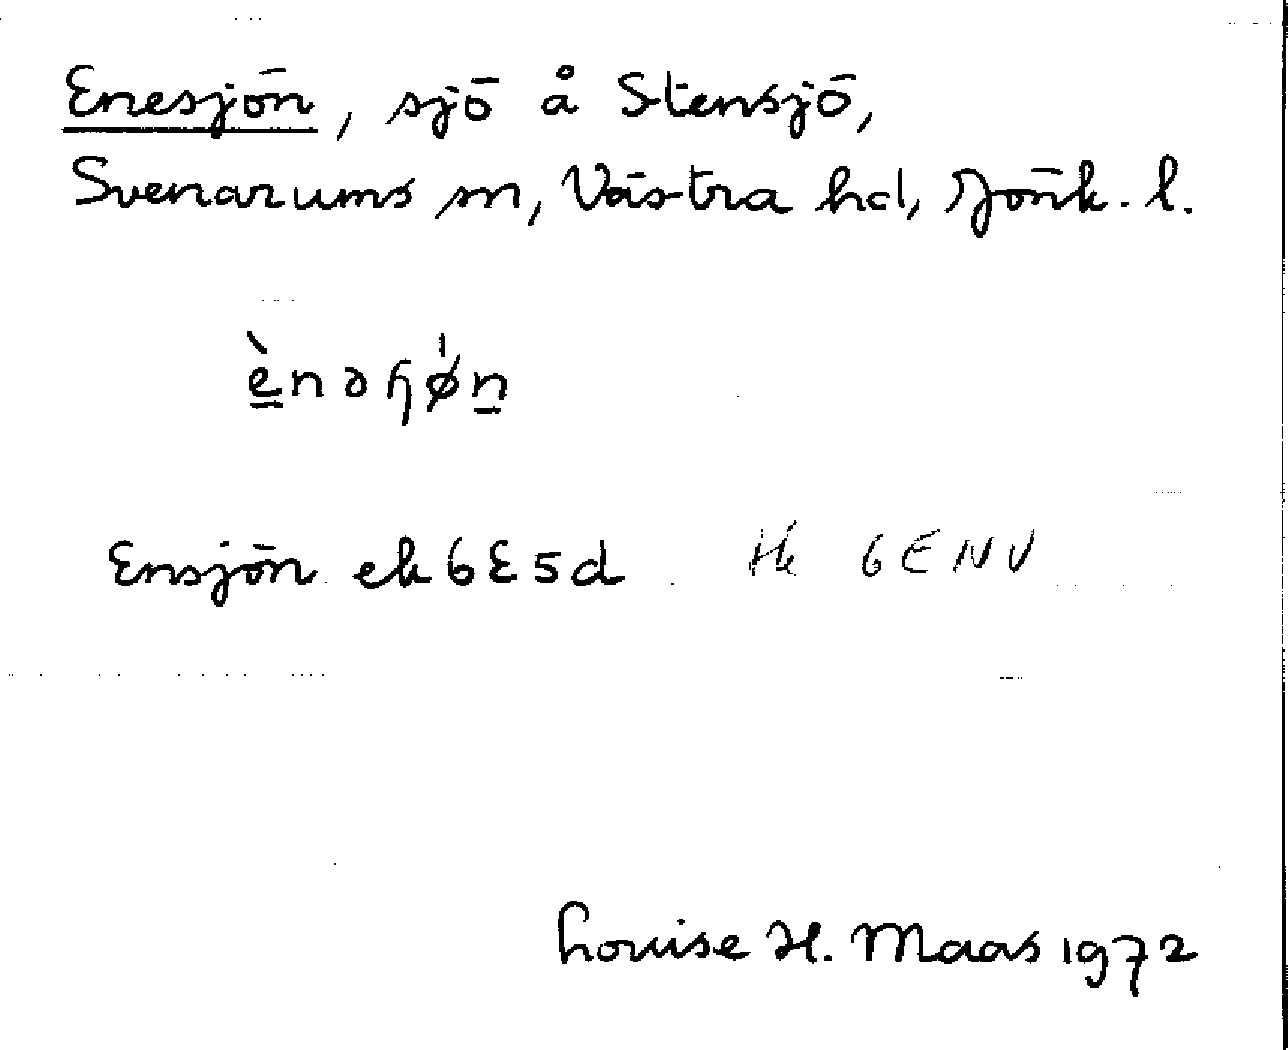 Enesjön, sjö å Stensjö,
Svenarums sn, Västra hd, Jönk. l.
Ensjön ek 6E5d Hk 6E NV
Louise H. Maas 1972